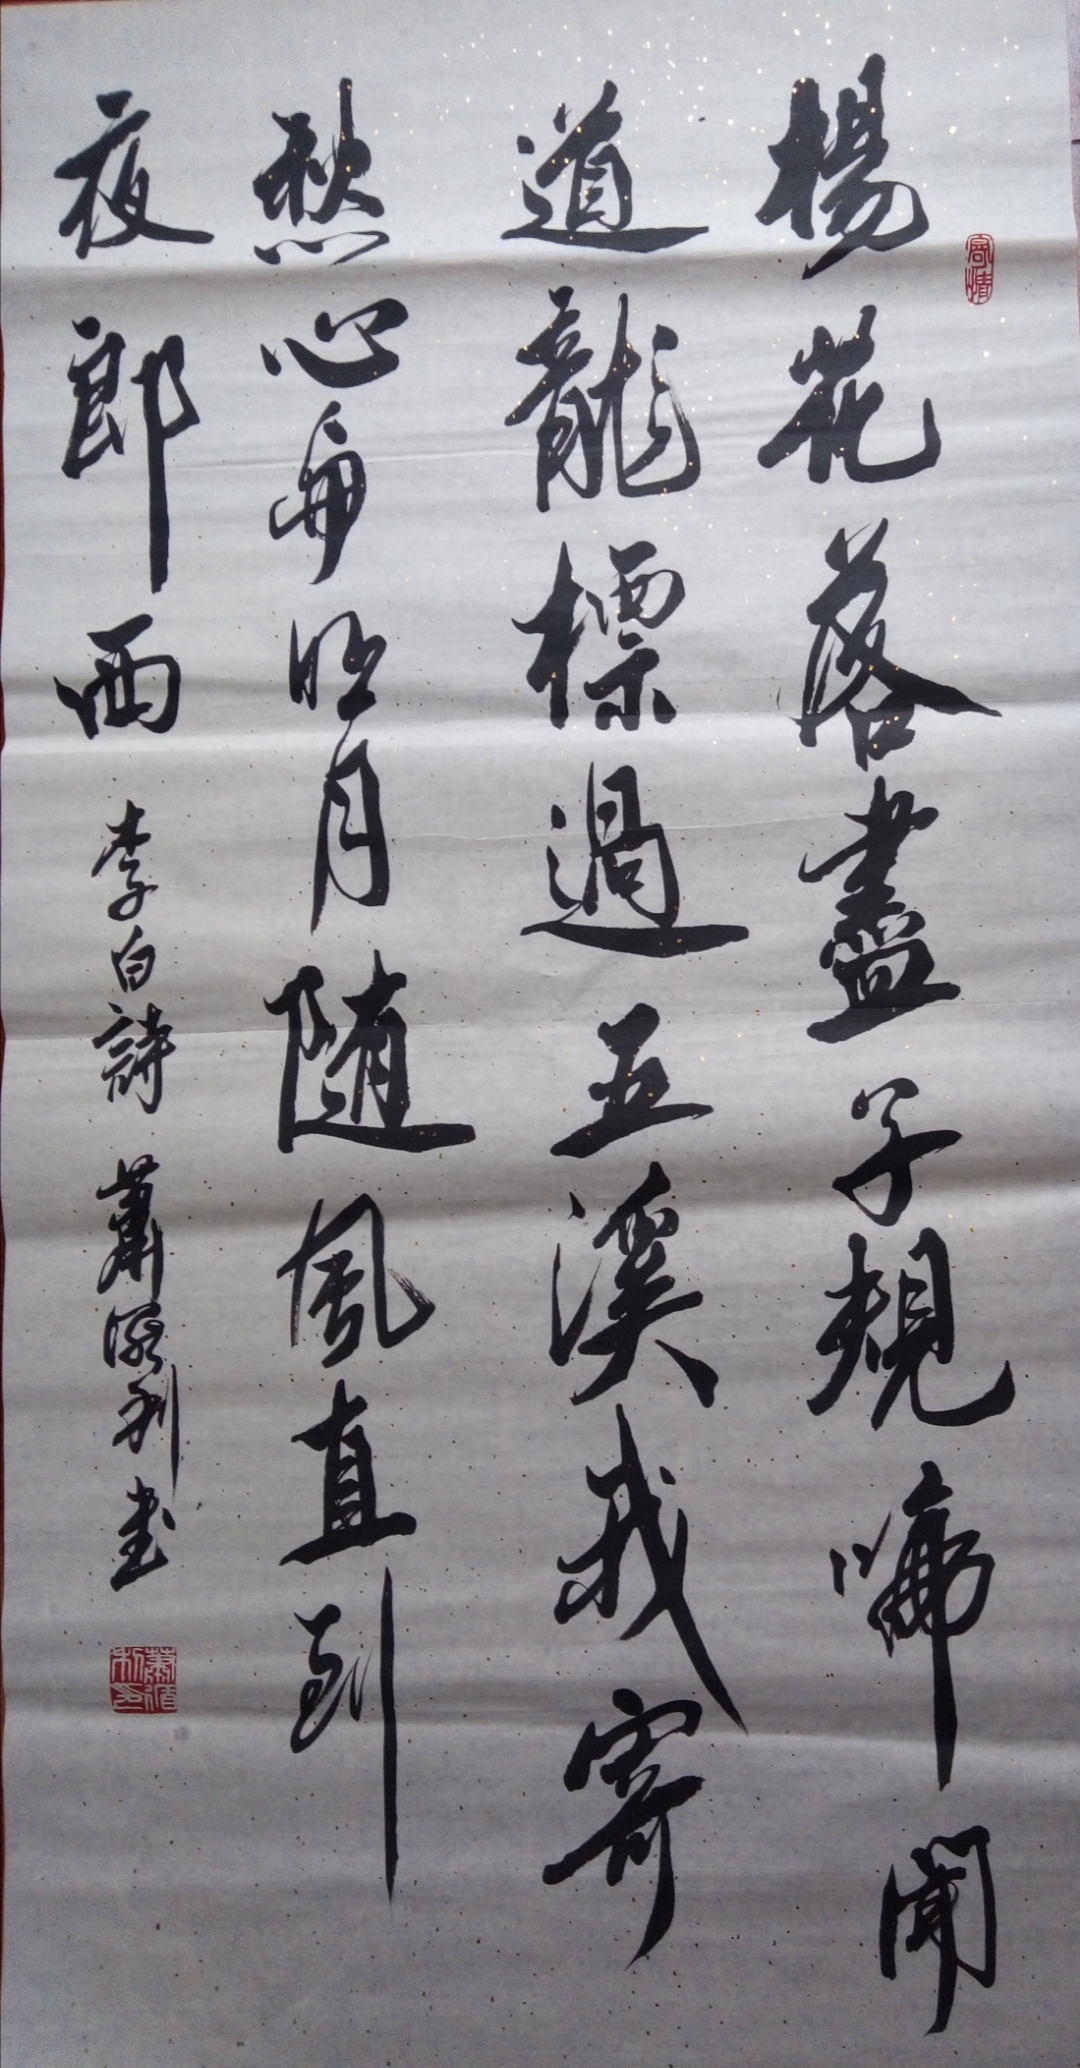 寓情
楊花落盡子規啼聞
道龍標過五溪我寄
愁心與明月随風直到
夜郎西 李白詩 蕭利書